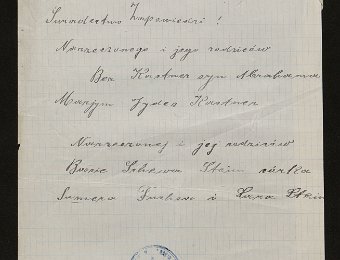 Świadectwo Zapowiedzi!
Narzeczonego i jego rodziców
Ber Kastner syn Abrahama
Marjym Jydes Kastner
Narzeczonej i jej rodziców
Stein córka
i Sara Stein